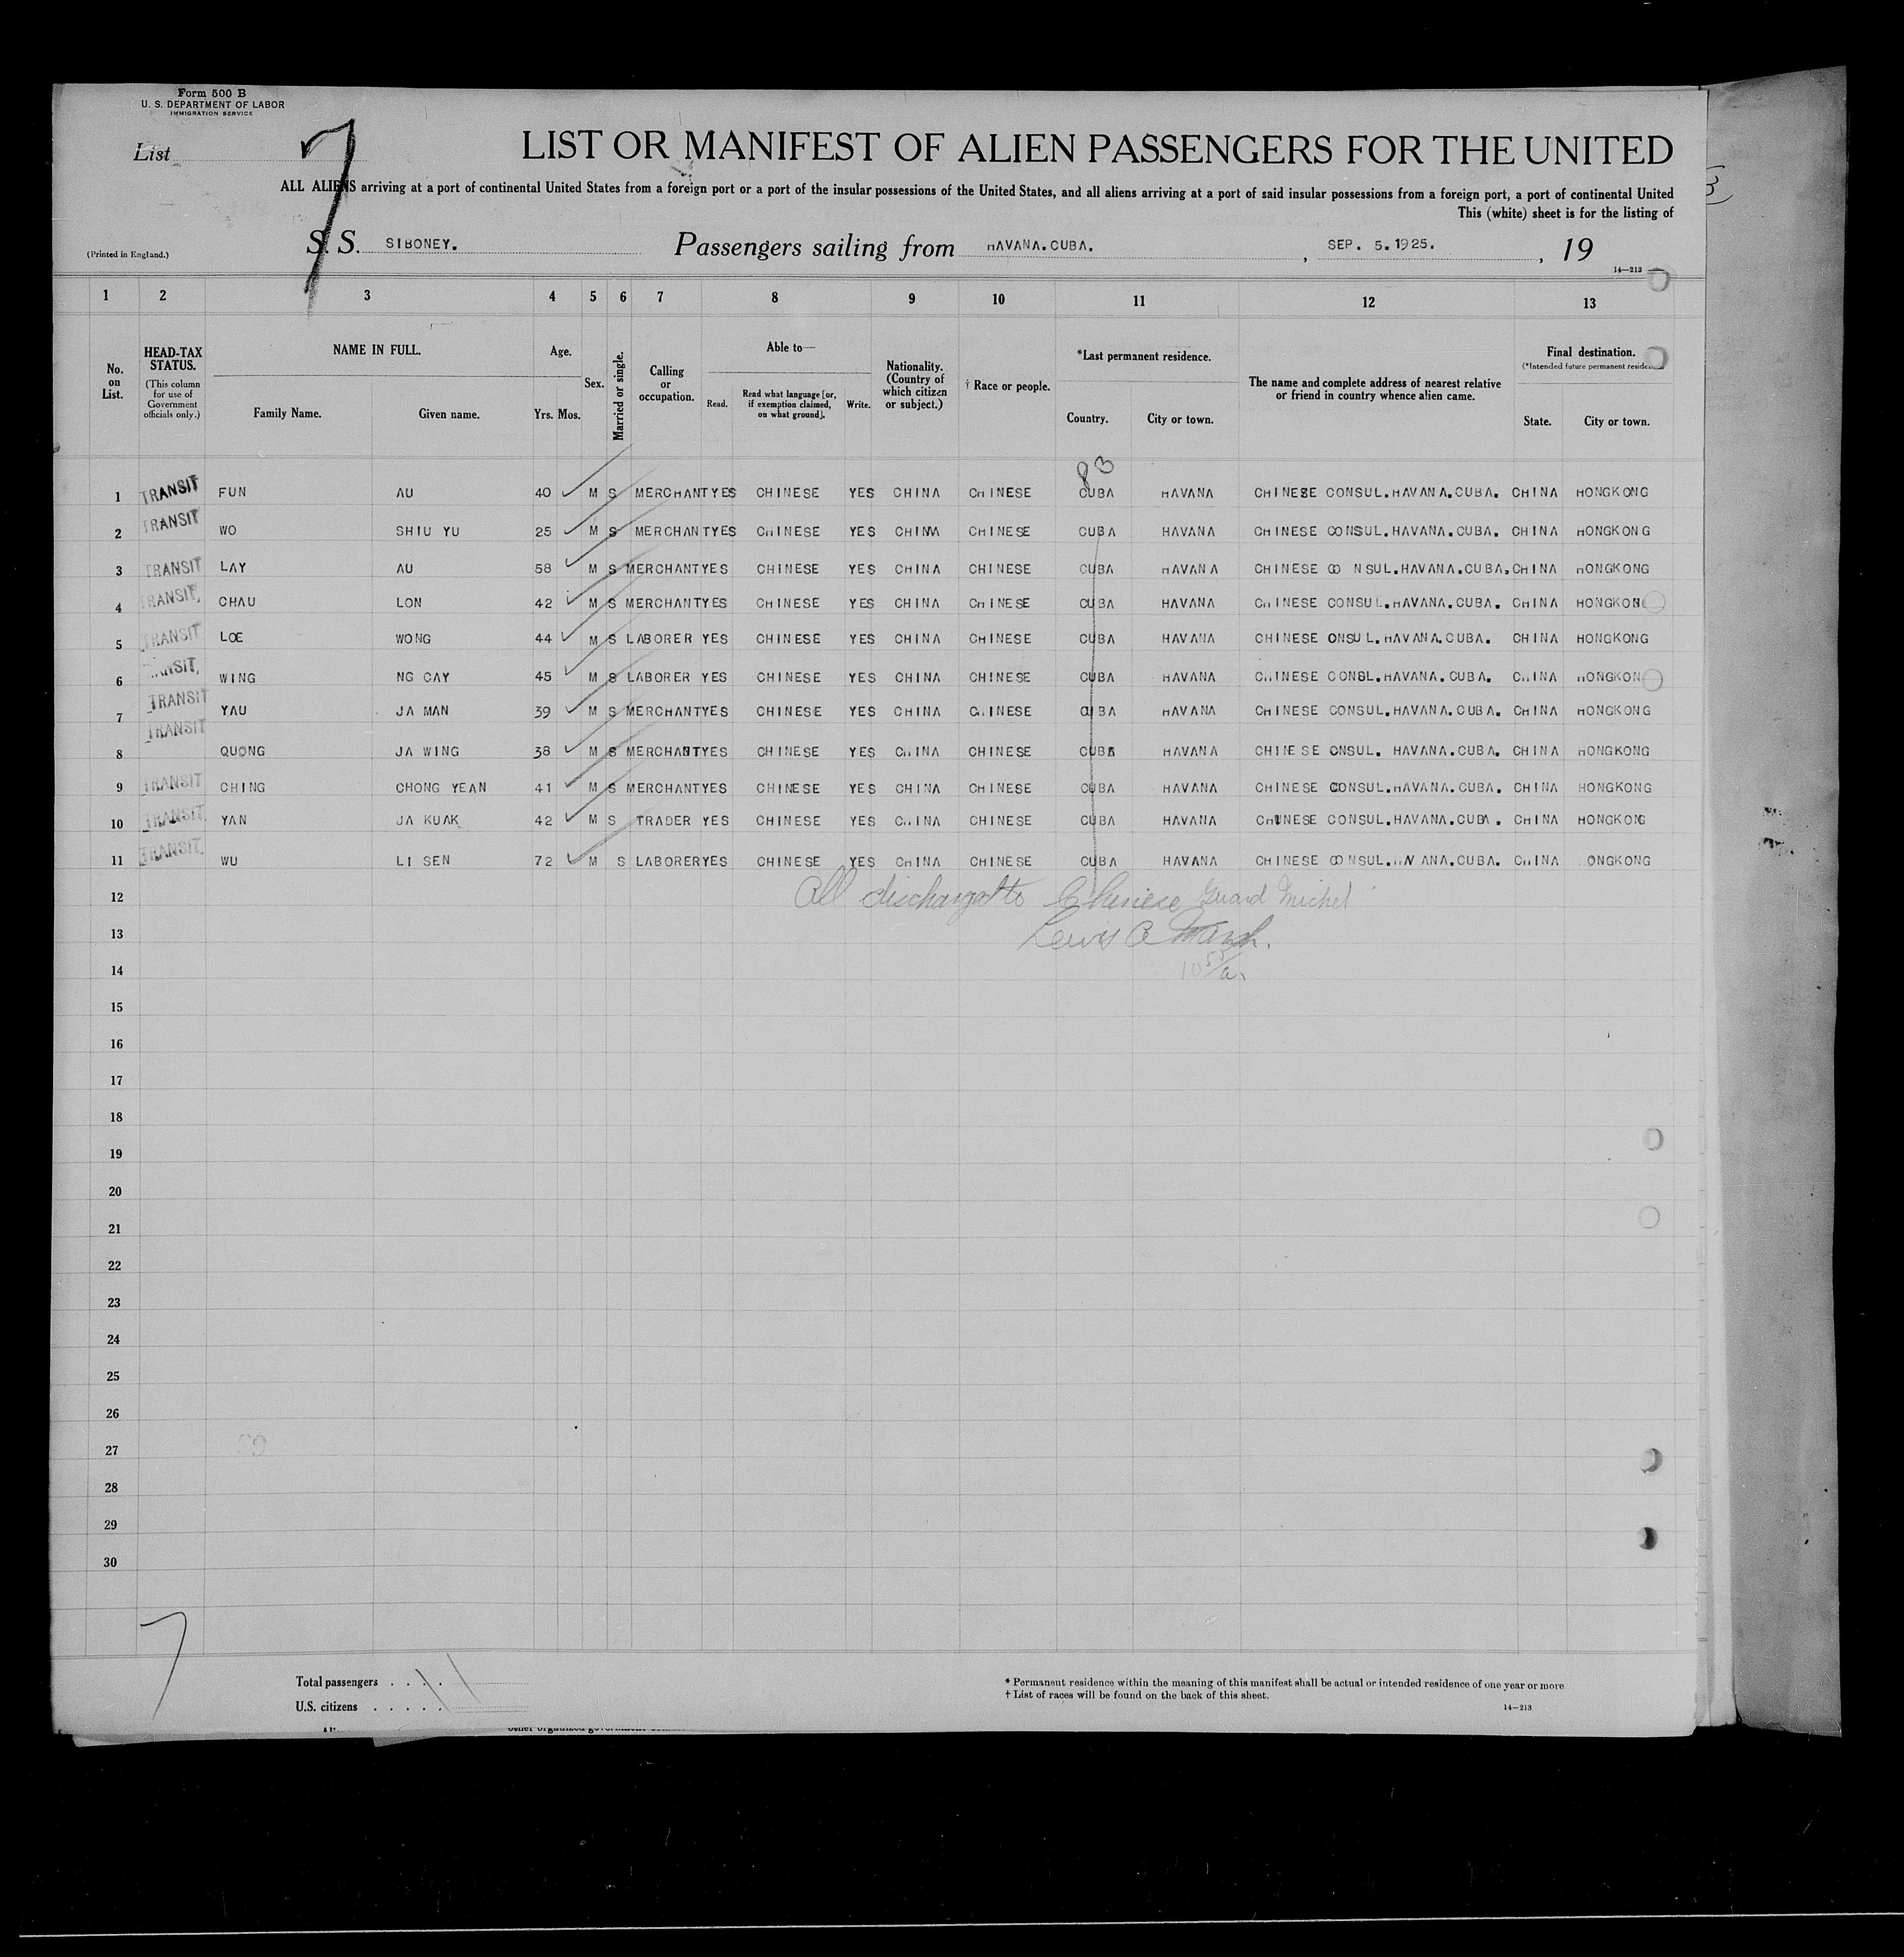 Form 500 B
U. S. DEPARTMENT OF LABOR
IMMIGRATION SERVICE
List 7
LIST OR MANIFEST OF ALIEN PASSENGERS FOR THE UNITED
ALL ALIENS arriving at a port of continental United States from a foreign port or a port of the insular possessions of the United States, and all aliens arriving at a port of said insular possessions from a foreign port, a port of continental United
This (white) sheet is for the listing of
(Printed in England.) S. S. SIBONEY. Passengers sailing from HAVANA.CUBA. , SEP. 5.1925. , 19
14—213
1 2 3 4 5 6 7 8 9 10 11 12 13
No. on List. HEAD-TAX STATUS. (This column for use of Government officials only.) NAME IN FULL. Family Name. Given name. Age. Yrs. Mos. Sex. Married or single. Calling or occupation. Able to— Read. Read what language [or, if exemption claimed, on what ground]. Write. Nationality. (Country of which citizen or subject.) † Race or people. *Last permanent residence. Country. City or town. The name and complete address of nearest relative or friend in country whence alien came. Final destination. (*Intended future permanent State. City or town.
83
1 TRANSIT FUN AU 40 M S MERCHANT YES CHINESE YES CHINA CHINESE CUBA HAVANA CHINESE CONSUL.HAVANA.CUBA. CHINA HONGKONG
2 TRANSIT WO SHIU YU 25 M S MERCHANT YES CHINESE YES CHINA CHINESE CUBA HAVANA CHINESE CONSUL.HAVANA.CUBA. CHINA HONGKONG
3 TRANSIT LAY AU 58 M S MERCHANT YES CHINESE YES CHINA CHINESE CUBA HAVANA CHINESE CO NSUL.HAVANA.CUBA. CHINA HONGKONG
4 TRANSIT CHAU LON 42 M S MERCHANT YES CHINESE YES CHINA CHINESE CUBA HAVANA CHINESE CONSUL.HAVANA.CUBA. CHINA HONGKONG
5 TRANSIT LOE WONG 44 M S LABORER YES CHINESE YES CHINA CHINESE CUBA HAVANA CHINESE ONSUL.HAVANA.CUBA. CHINA HONGKONG
6 TRANSIT WING NG CAY 45 M S LABORER YES CHINESE YES CHINA CHINESE CUBA HAVANA CHINESE CONSL.HAVANA.CUBA. CHINA HONGKON
7 TRANSIT YAU JA MAN 39 M S MERCHANT YES CHINESE YES CHINA CHINESE CUBA HAVANA CHINESE CONSUL.HAVANA.CUBA. CHINA HONGKONG
8 TRANSIT QUONG JA WING 38 M S MERCHANT YES CHINESE YES CHINA CHINESE CUBA HAVANA CHINESE ONSUL. HAVANA.CUBA. CHINA HONGKONG
9 TRANSIT CHING CHONG YEAN 41 M S MERCHANT YES CHINESE YES CHINA CHINESE CUBA HAVANA CHINESE CONSUL.HAVANA.CUBA. CHINA HONGKONG
10 TRANSIT YAN JA KUAK 42 M S TRADER YES CHINESE YES CHINA CHINESE CUBA HAVANA CHINESE CONSUL.HAVANA.CUBA. CHINA HONGKONG
11 TRANSIT WU LI SEN 72 M S LABORER YES CHINESE YES CHINA CHINESE CUBA HAVANA CHINESE CO NSUL.HAVANA.CUBA. CHINA ONGKONG
12 All discharged to Chinese Guard Michel
13 Lewis
14
15
16
17
18
19
20
21
22
23
24
25
26
27
28
29
30
7
Total passengers . . . . 11
U.S. citizens . . . . .
* Permanent residence within the meaning of this manifest shall be actual or intended residence of one year or more
† List of races will be found on the back of this sheet.
14—213